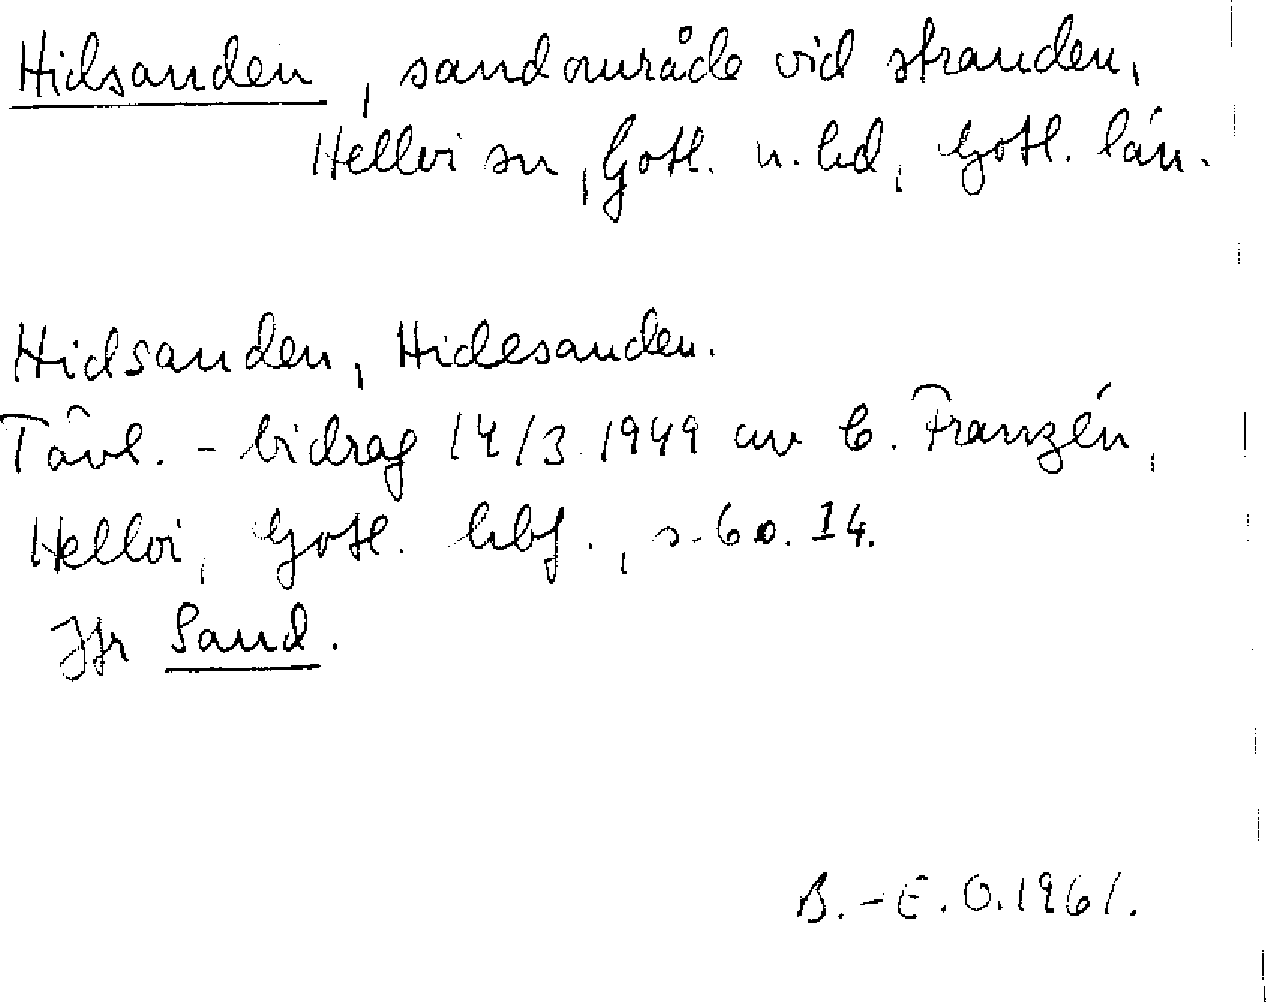 Hidsanden, sandområde vid stranden,
Hellvi sn, Gotl. n. hd, Gotl. län.
Hidsanden, Hidesanden.
Tävl.-bidrag 14/3 1949 av C. Franzén,
Hellvi, Gotl. hbf., s. 6 o. 14.
Jfr Sand.
B.-E.O. 1961.